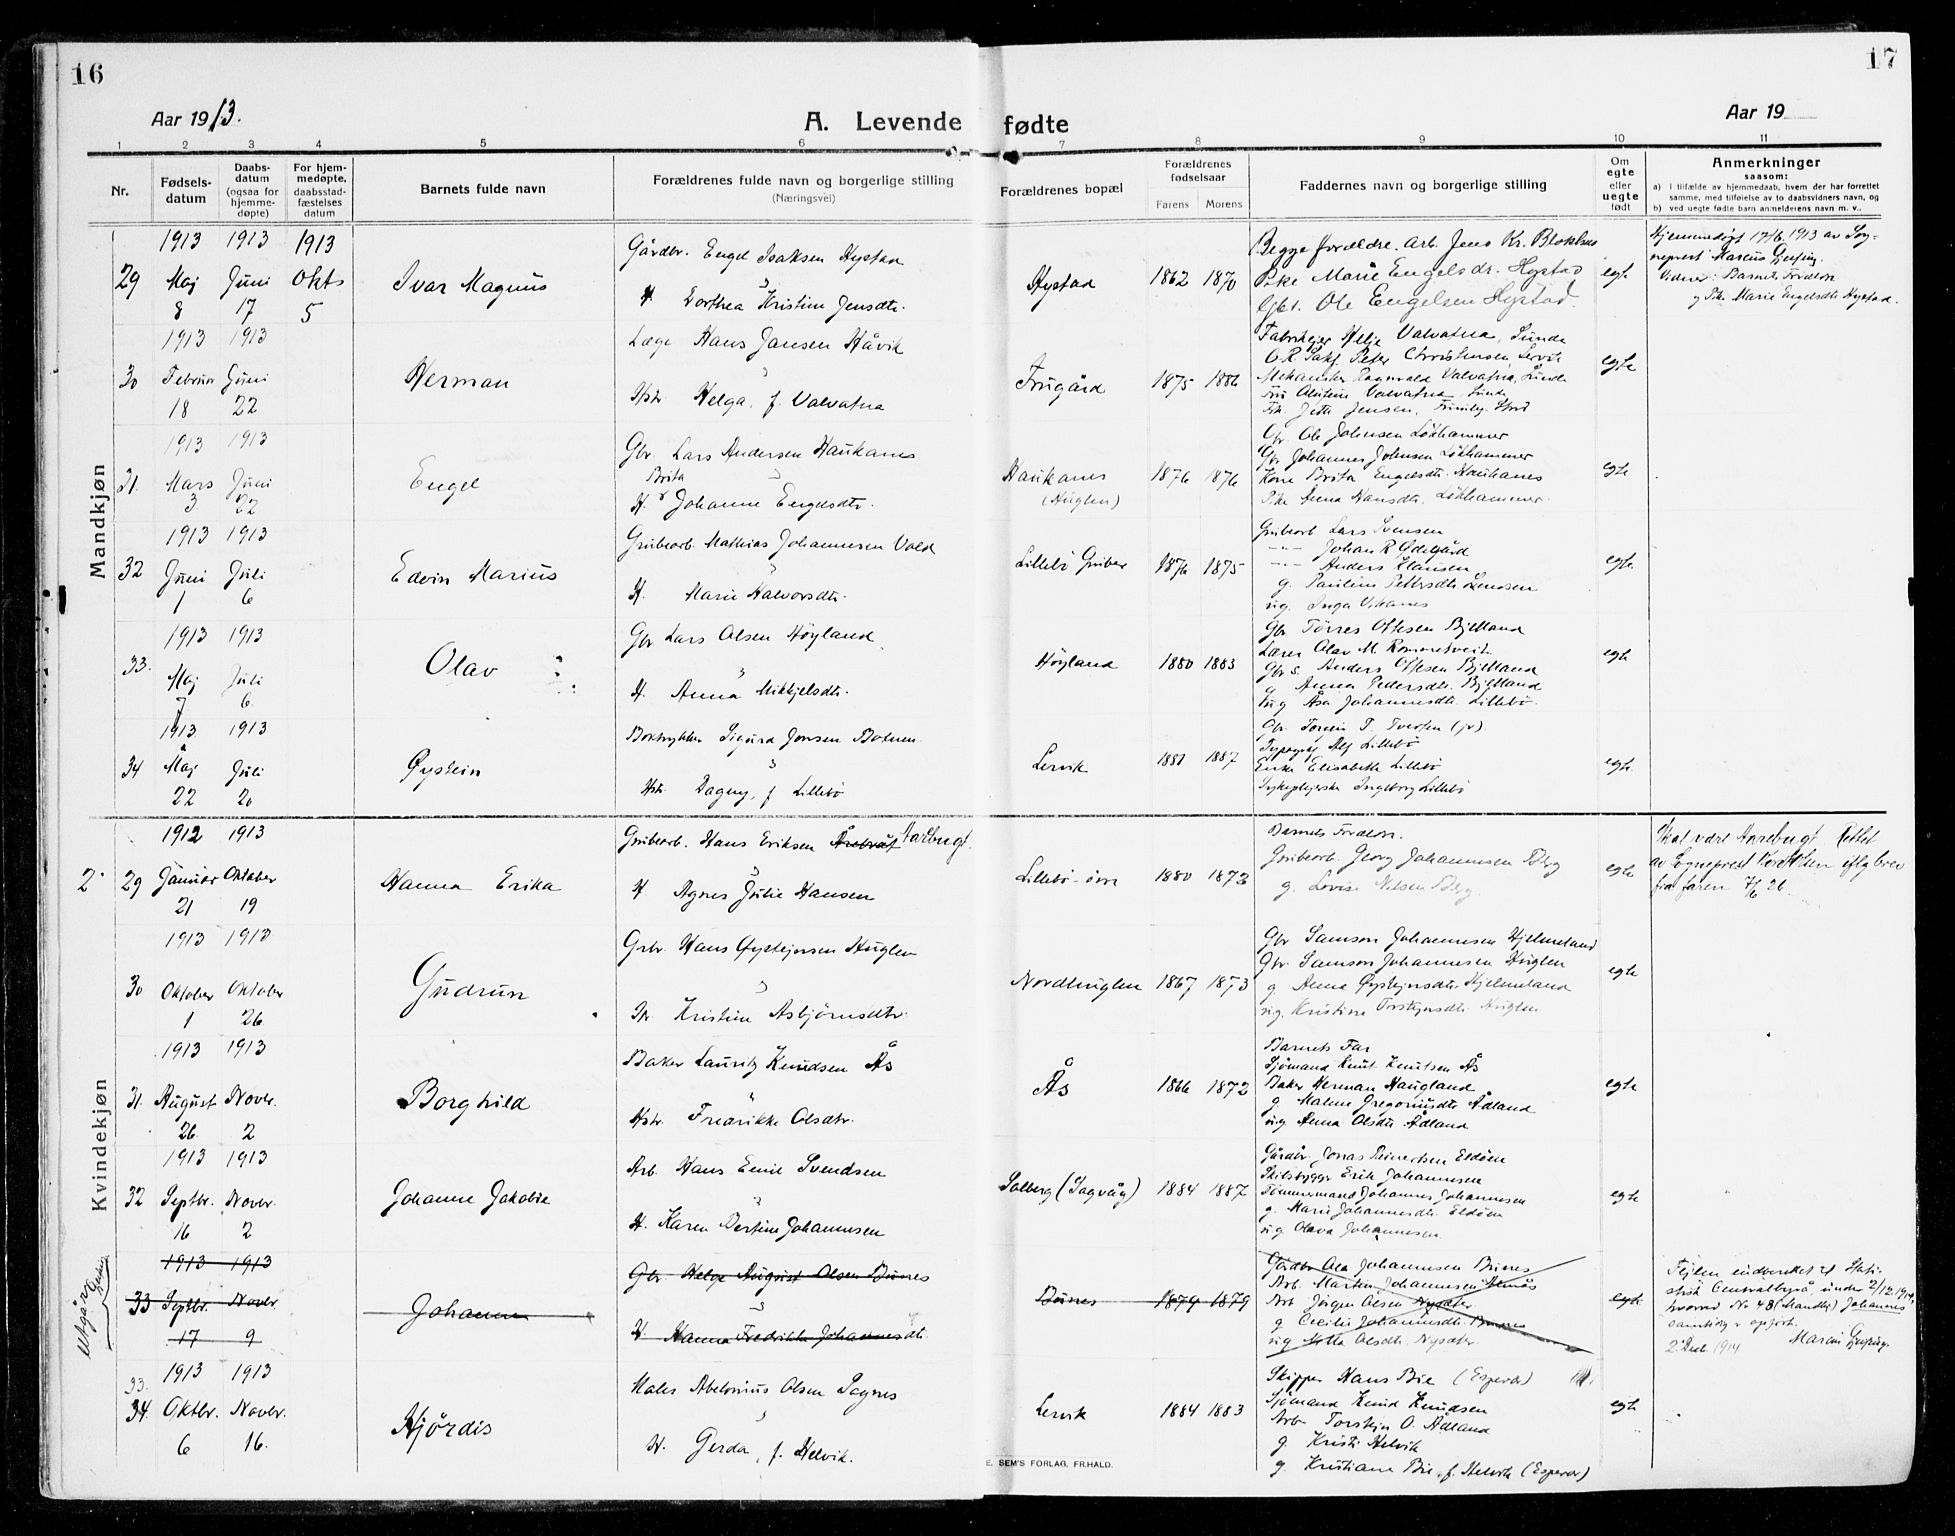 16
17
Aar 1913.
A. Levende fødte
Aar 19
1 2 3 4 5 6 7 8 9 10 11
Nr.
Fødsels-
datum
Daabs-
datum
(ogsaa for
hjemme-
døpte)
For hjem-
medøpte,
daabsstad-
fæstelses
datum
Barnets fulde navn
Forældrenes fulde navn og borgerlige stilling
(Næringsvei)
Forældrenes bopæl
Forældrenes
fødselsaar
Farens Morens
Faddernes navn og borgerlige stilling
Om
egte
eller
uegte
født
Anmerkninger
saasom:
a) I tilfælde av hjemmedaab, hvem der har forrettet
samme, med tilføielse av to daabsvidners navn, og
b) ved uegte fødte barn anmelderens navn m. v..
Mandkjøn
29
1913 1913 1913
Maj Juni Okts
8 17 5
Ivar Magnus
Gårdbr. Engel Isaksen Hystad
H Dorthea Kristine Jensdtr.
Hystad
1862 1870
Begge forældre. Arb. Jens Kr.
Pike Marie Engelsdr. Hystad
Gbr. Ole Engelsen Hystad.
egte
Hjemmedøpt 17/6 1913 av Sog-
neprest Marcus Gjessing.
Vidner: Barnets Forældre
og Pike Marie Engelsdtr Hystad.
30
1913 1913
Februar Juni
18 22
Herman
Læge Hans Jansen Håvik
Hstr Helga, f. Valvatna
Frugård
1875 1886
Fabrikejer Helje Valvatna, Sunde
O.R.Sakf. Peter Christensen Lervik
Mekaniker Ragnvald Valvatna, Sunde
Valvatna, Sunde
Frk. Jetta Jensen, Stord
egte
31.
1913 1913
Mars Juni
3 22
Engel
Gbr Lars Andersen Haukanes
Brita
H. Johanne Engelsdtr.
Haukanes
(Huglen)
1876 1876
Gbr. Ole Johnsen Løkhammer
Gbr Johannes Johnsen Løkhammer
Kone Brita Engelsdtr. Haukanes
Pike Anna Hansdtr. Løkhammer.
egte
32
1913 1913
Juni Juli
1 6
Edvin Marius
Grubearb. Mathias Johannesen Vold
H. Marie Halvorsdtr.
Lillebø Gruber
1876 1875
Grubearb Lars Svensen
-"- Johan R Ødegård
-"- Anders Klausen
g. Pauline Pettersdtr Svensen
ug. Inga Vihanes
egte
33.
1913 1913
Maj Juli
7 6.
Olav
Gbr Lars Olsen Høyland
H. Anna Mikkjelsdtr.
Høyland
1880 1883
Gbr Tørres Ottesen Bjelland
Lærer Olav M. Rommetveit
Gbr s. Anders Ottesen Bjelland
g Anna Pedersdtr. Bjelland
ug Åsa Johannesdtr. Lillebø.
egte
34
1913 1913
Maj Juli
22 20
Øystein
Boktrykker Sigurd Jonsen Botnen
Hstr. Dagny, f Lillebø
Lervik
1881 1887
Gbr. Torgeir T. Tversen (jr).
Typograf Alf Lillebø
Enke Elisabeth Lillebø
Sykeplejerske Ingeborg Lillebø
egte.
Kvindekjøn
2
29
1912 1913
Januar Oktober
21 19
Hanna Erika
Grubearb. Hans Eriksen Årebrut Aarbugt.
H Agnes Julie Hansen
Lillebø-övre
1880 1873
Barnets Forældre.
Grubearb. Georg Johannesen Berg
g. Lovise Nilsen Berg.
egte
Skal være Aarebugt. Rettet
av Sogneprest eftg brev
fra faren 7/6 26.
30
1913 1913
Oktober Oktober
1 26
Gudrun
Grbr. Hans Øystejnsen Huglen
H. Kristine Asbjörnsdtr.
Nordhuglen
1867 1873
Gbr Samson Johannesen Hjelmeland
Gbr. Samson Johannesen Huglen
g Anna Øystejnsdtr. Hjelmeland
ug. Kristine Torstejnsdtr. Huglen
egte
31.
1913 1913
August Novbr.
26. 2
Borghild
Baker Lauritz Knudsen Ås
Hstr. Fredrikke Olsdtr.
Ås
1866 1872
Barnets Far
Sjømand Knut Knutsen Ås
Baker Herman Haugland
g. Malene Gregoriusdtr Ådland
ug Anna Olsdtr Ådland
egte
32
1913 1913
Septbr. Novbr.
16 2
Johanne Jakobie
Arb. Hans Emil Svendsen
H. Karen Bertine Johannesen
Solberg (Sagvåg)
1884 1887
Gårdbr. Jonas Reinertsen Eldøen
Skibsbygger Erik Johannesen
Tømmermand Johannes Johannesen
g. Marie Johannesdtr. Eldøen
ug Olava Johannesen
egte
Utgår
33
1913 1913
Septbr. Novbr.
17 9
Johanne
Gbr. Helge August Olsen Bunes
H. Hanna Fredrikke Johannesdtr.
Bunes
1879 1879
Gårdbr Ola Johannesen Bunes
Arb. Martin Johannesen Almås
Arb Jörgen Olsen Nysæter
g Cecilie Johannesdtr. Bunes
ug Olsdtr. Nysæter
egte
Fejlen indberettet til Stati-
stisk Centralbyrå under 2/12 1914,
hvorved No 48 (Mandkj) Johannes
samtidig er opført.
2 Decbr 1914 Marcus Gjessing.
33.
34.
1913 1913
Oktbr. Novbr.
6 16.
Hjördis
Maler Abelonius Olsen Sagnes
H. Gerda, f. Helvik.
Lervik
1884 1883
Skipper Hans Bie (Espevær)
Sjømand Knud Knudsen
Arb Torstejn O. Ådland
g. Kristi Helvik
g. Kristiane Bie, f. Helvik (Espevær)
egte
E. SEM'S FORLAG, FR.HALD.